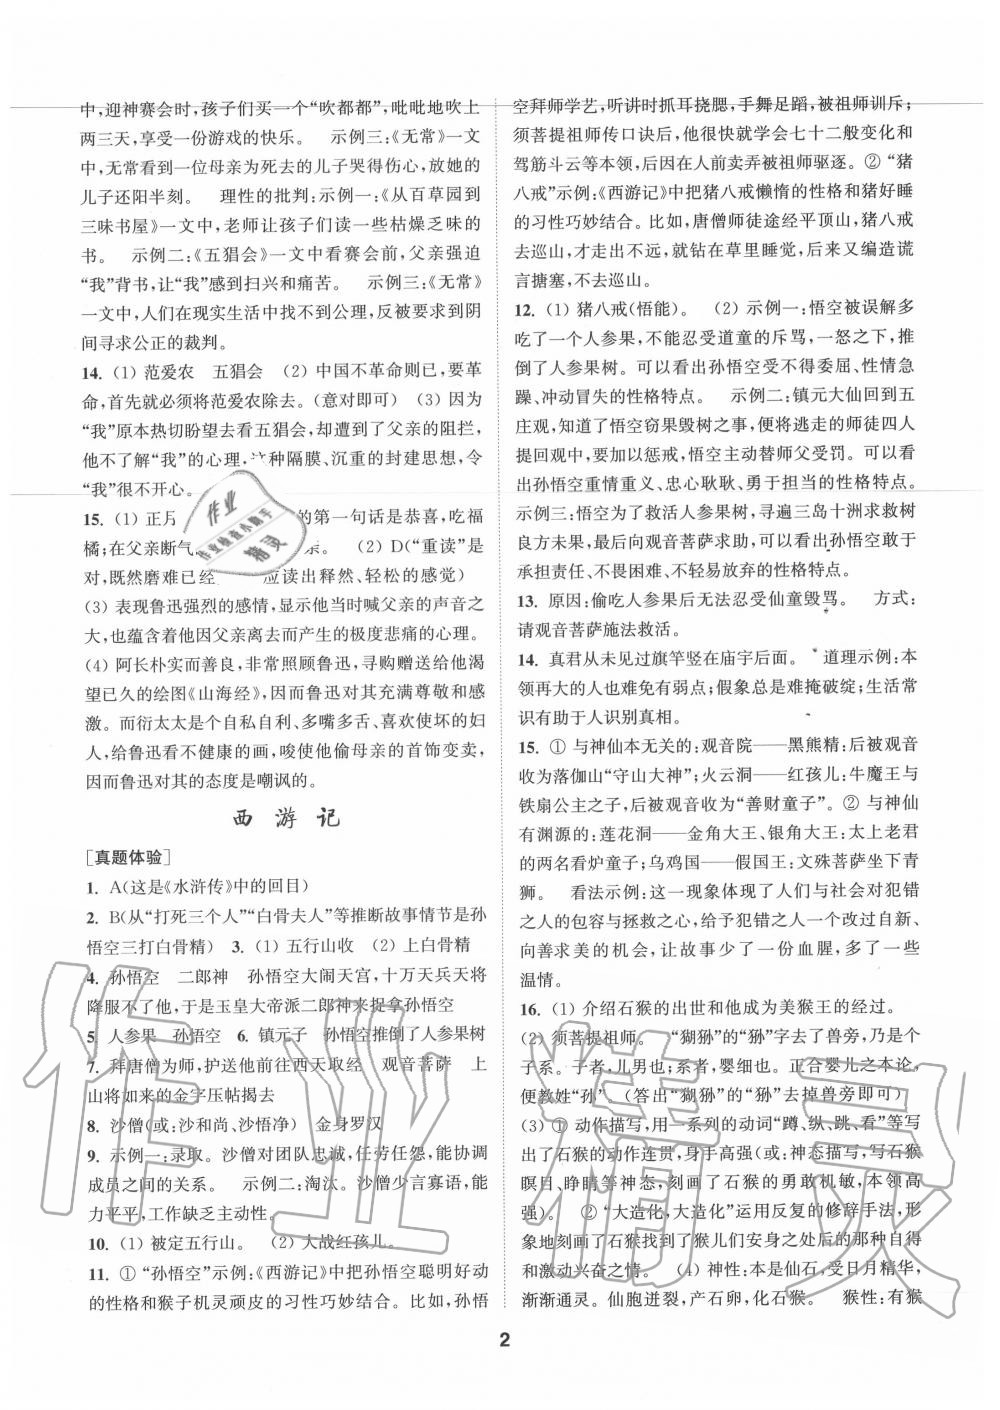 中,迎神赛会时,孩子们买一个“吹都都”,吡吡地吹上
两三天,享受一份游戏的快乐。 示例三:《无常》一文
中,无常看到一位母亲为死去的儿子哭得伤心,放她的
儿子还阳半刻。 理性的批判:示例一:《从百草园到
三味书屋》一文中,老师让孩子们读一些枯燥乏味的
书。 示例二:《五猖会》一文中看赛会前,父亲强迫
“我”背书,让“我”感到扫兴和痛苦。 示例三:《无常》
一文中,人们在现实生活中找不到公理,反要到阴
间寻求公正的裁判。
14. (1) 范爱农 五猖会 (2) 中国不革命则已,要革
命,首先就必须将范爱农除去。(意对即可) (3) 因为
“我”原本热切盼望去看五猖会,却遭到了父亲的阻拦,
他不了解“我”的心理,这种隔膜、沉重的封建思想,令
“我”很不开心。
15. (1) 正月 的第一句话是恭喜,吃福
橘;在父亲断气 亲。 (2) D(“重读”是
对,既然磨难已经 应读出释然、轻松的感觉)
(3) 表现鲁迅强烈的感情,显示他当时喊父亲的声音之
大,也蕴含着他因父亲离去而产生的极度悲痛的心理。
(4) 阿长朴实而善良,非常照顾鲁迅,寻购赠送给他渴
望已久的绘图《山海经》,因而鲁迅对其充满尊敬和感
激。而衍太太是个自私自利、多嘴多舌、喜欢使坏的妇
人,给鲁迅看不健康的画,唆使他偷母亲的首饰变卖,
因而鲁迅对其的态度是嘲讽的。
西 游 记
[真题体验]
1. A(这是《水浒传》中的回目)
2. B(从“打死三个人”“白骨夫人”等推断故事情节是孙
悟空三打白骨精) 3. (1) 五行山收 (2) 上白骨精
4. 孙悟空 二郎神 孙悟空大闹天宫,十万天兵天将
降服不了他,于是玉皇大帝派二郎神来捉拿孙悟空
5. 人参果 孙悟空 6. 镇元子 孙悟空推倒了人参果树
7. 拜唐僧为师,护送他前往西天取经 观音菩萨 上
山将如来的金字压帖揭去
8. 沙僧(或:沙和尚、沙悟净) 金身罗汉
9. 示例一:录取。沙僧对团队忠诚,任劳任怨,能协调
成员之间的关系。 示例二:淘汰。沙僧少言寡语,能
力平平,工作缺乏主动性。
10. (1) 被定五行山。 (2) 大战红孩儿。
11. ① “孙悟空”示例:《西游记》中把孙悟空聪明好动
的性格和猴子机灵顽皮的习性巧妙结合。比如,孙悟
空拜师学艺,听讲时抓耳挠腮,手舞足蹈,被祖师训斥;
须菩提祖师传口诀后,他很快就学会七十二般变化和
驾筋斗云等本领,后因在人前卖弄被祖师驱逐。② “猪
八戒”示例:《西游记》中把猪八戒懒惰的性格和猪好睡
的习性巧妙结合。比如,唐僧师徒途经平顶山,猪八戒
去巡山,才走出不远,就钻在草里睡觉,后来又编造谎
言搪塞,不去巡山。
12. (1) 猪八戒(悟能)。 (2) 示例一:悟空被误解多
吃了一个人参果,不能忍受道童的斥骂,一怒之下,推
倒了人参果树。可以看出孙悟空受不得委屈、性情急
躁、冲动冒失的性格特点。 示例二:镇元大仙回到五
庄观,知道了悟空窃果毁树之事,便将逃走的师徒四人
提回观中,要加以惩戒,悟空主动替师父受罚。可以看
出孙悟空重情重义、忠心耿耿、勇于担当的性格特点。
示例三:悟空为了救活人参果树,寻遍三岛十洲求救树
良方未果,最后向观音菩萨求助,可以看出孙悟空敢于
承担责任、不畏困难、不轻易放弃的性格特点。
13. 原因:偷吃人参果后无法忍受仙童毁骂。 方式:
请观音菩萨施法救活。
14. 真君从未见过旗竿竖在庙宇后面。 道理示例:本
领再大的人也难免有弱点;假象总是难掩破绽;生活常
识有助于人识别真相。
15. ① 与神仙本无关的:观音院——黑熊精:后被观音
收为落伽山“守山大神”;火云洞——红孩儿:牛魔王与
铁扇公主之子,后被观音收为“善财童子”。② 与神仙
有渊源的:莲花洞——金角大王、银角大王:太上老君
的两名看炉童子;乌鸡国——假国王:文殊菩萨坐下青
狮。 看法示例:这一现象体现了人们与社会对犯错
之人的包容与拯救之心,给予犯错之人一个改过自新、
向善求美的机会,让故事少了一份血腥,多了一些
温情。
16. (1) 介绍石猴的出世和他成为美猴王的经过。
(2) 须菩提祖师。 “猢狲”的“狲”字去了兽旁,乃是个
子系。子者,儿男也;系者,婴细也。正合婴儿之本论,
便教姓“孙”。(答出“猢狲”的“狲”去掉兽旁即可)
(3) ① 动作描写,用一系列的动词“蹲、纵、跳、看”等写
出了石猴的动作连贯,身手高强(或:神态描写,写石猴
瞑目、睁睛等神态,刻画了石猴的勇敢机敏,本领高
强)。 ② “大造化,大造化”运用反复的修辞手法,形
象地刻画了石猴找到了猴儿们安身之处后的那种自得
和激动兴奋之情。 (4) 神性:本是仙石,受日月精华,
渐渐通灵。仙胞迸裂,产石卵,化石猴。 猴性:有猴
2
作业
作业检查小助手
精灵
作业精灵